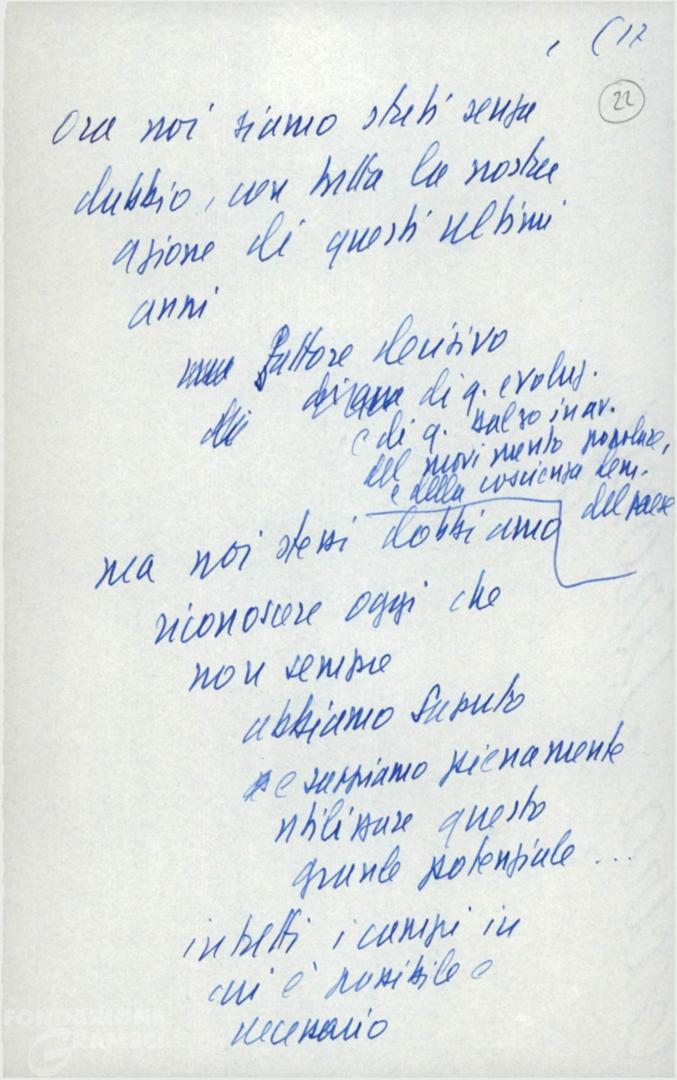 (17
22
Ora noi siamo stati senza
dubbio, con tutta la nostra
azione di questi ultimi
anni
un fattore decisivo
di q. evoluz.
e di q. balzo in av.
del movimento popolare,
e della coscienza dem.
del paese
ma noi stessi dobbiamo
riconoscere oggi che
non sempre
abbiamo saputo
e sappiamo pienamente
utilizzare questo
grande potenziale ...
in tutti i campi in
cui è possibile e
necessario
FONDAZIONE
GRAMSCI